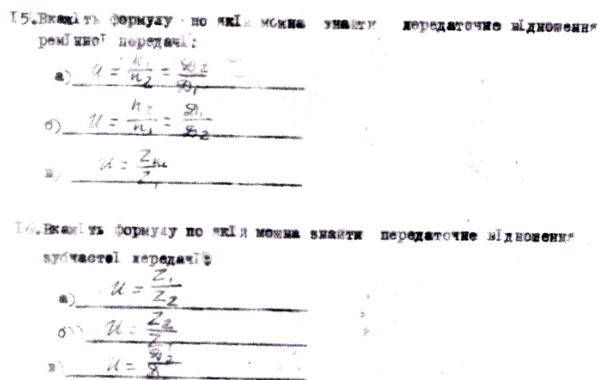 15.Вкажіть формулу по якій можна знайти передаточне відношення
ремінної передачі:
а) u = n₁/n₂ = D₂/D₁
б) u = n₂/n₁ = D₁/D₂
в) u =
16.Вкажіть формулу по якій можна знайти передаточне відношення
зубчастої передачі:
а) u = Z₁/Z₂
б) u = Z₂/Z₁
в) u =